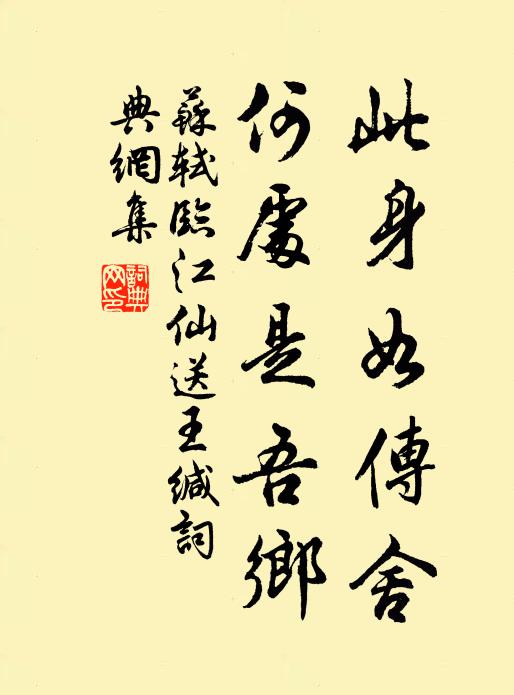 此身如傳舍
何處是吾鄉
蘇軾臨江仙送王緘詞
典網集
詞典網印